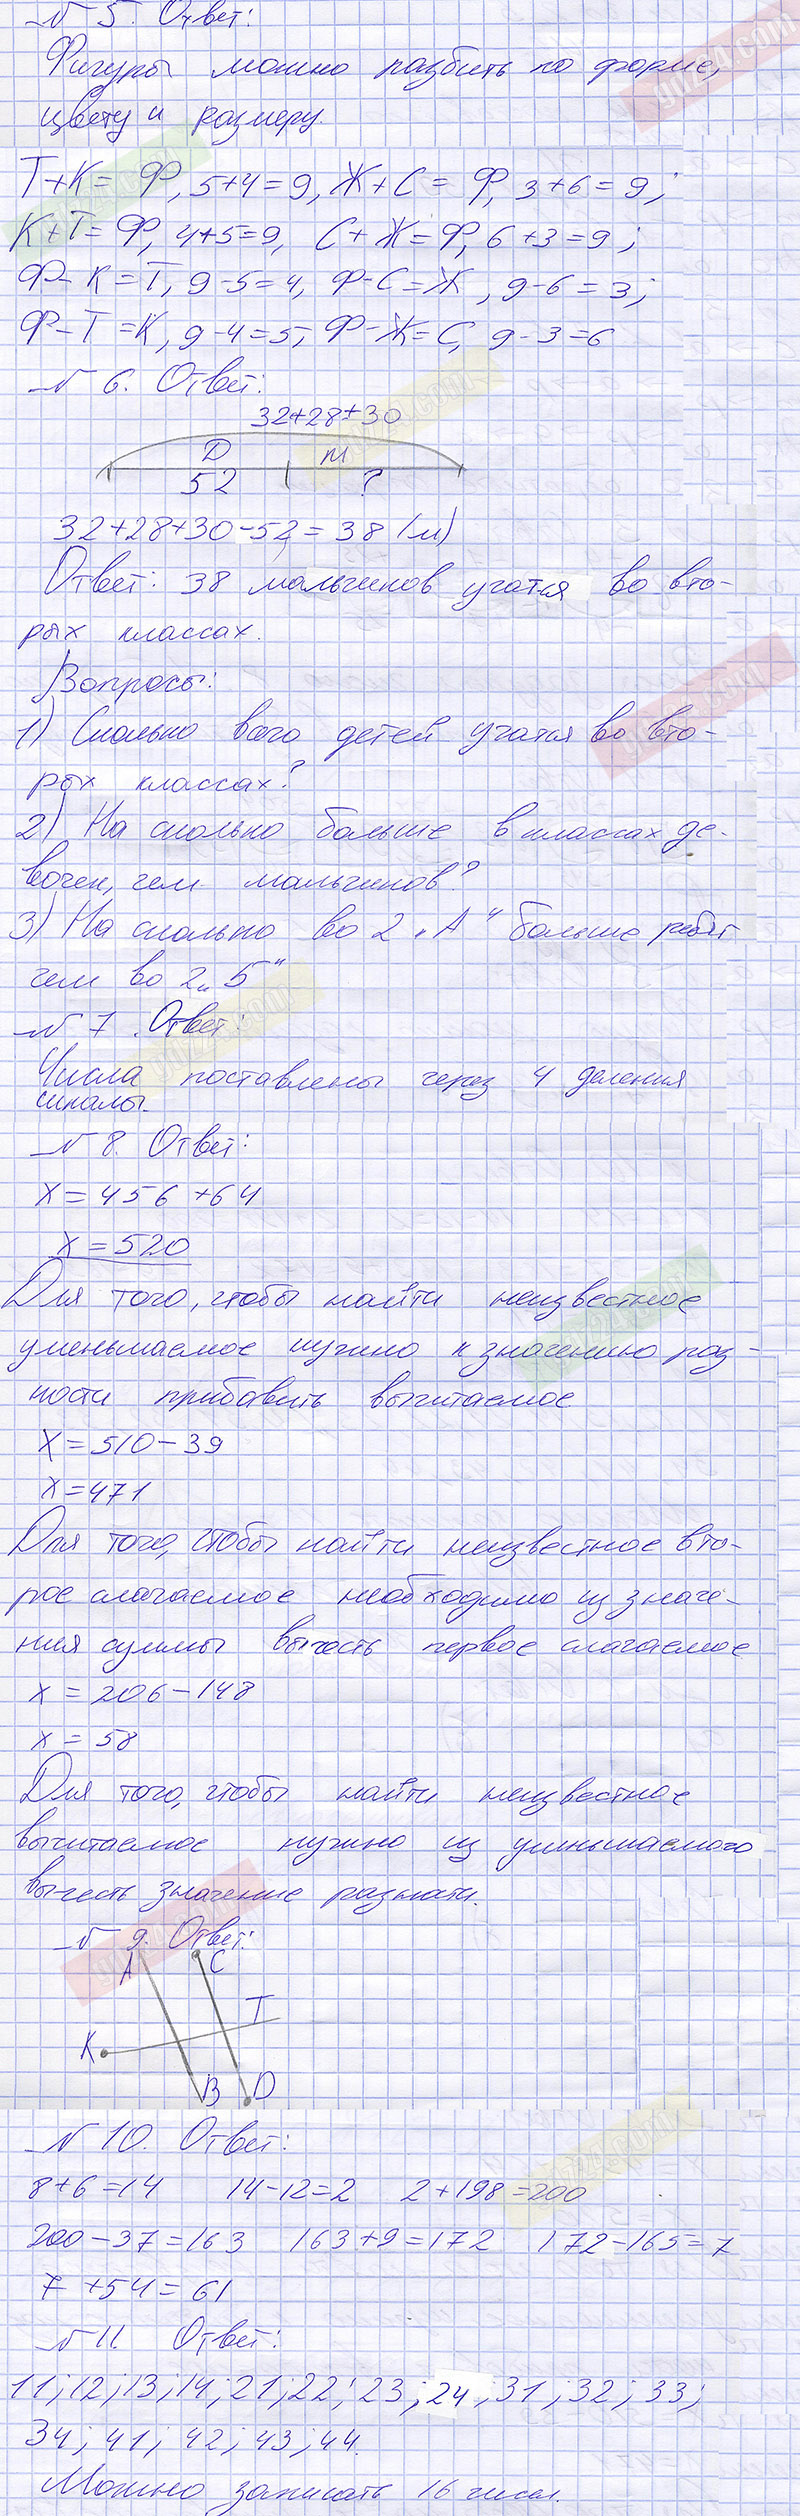 № 5. Ответ:
Фигуры можно разбить по форме,
цвету и размеру.
Т+К= Ф, 5+4=9, Ж+С= Ф, 3+6=9;
К+Т=Ф, 4+5=9, С+Ж=Ф, 6+3=9;
Ф-К=Т, 9-5=4, Ф-С=Ж, 9-6=3;
Ф-Т=К, 9-4=5, Ф-Ж=С, 9-3=6
№ 6. Ответ:
32+28+30
Д М
52 ?
32+28+30-52=38 (м)
Ответ: 38 мальчиков учатся во вто-
рых классах.
Вопросы:
1) Сколько всего детей учатся во вто-
рых классах?
2) На сколько больше в классах де-
вочек, чем мальчиков?
3) На сколько во 2 „А" больше ребят
чем во 2„Б"
№ 7. Ответ:
Числа поставлены через 4 деления
шкалы.
№ 8. Ответ:
х=456+64
х=520
Для того, чтобы найти неизвестное
уменьшаемое нужно к значению раз-
ности прибавить вычитаемое
х=510-39
х=471
Для того, чтобы найти неизвестное вто-
рое слагаемое необходимо из значе-
ния суммы вычесть первое слагаемое
х=206-148
х=58
Для того, чтобы найти неизвестное
вычитаемое нужно из уменьшаемого
вычесть значение разности.
№ 9. Ответ:
А С
К Т
В D
№ 10. Ответ:
8+6=14 14-12=2 2+198=200
200-37=163 163+9=172 172-165=7
7+54=61
№ 11. Ответ:
11; 12; 13; 14; 21; 22; 23; 24; 31; 32; 33;
34; 41; 42; 43; 44.
Можно записать 16 чисел.